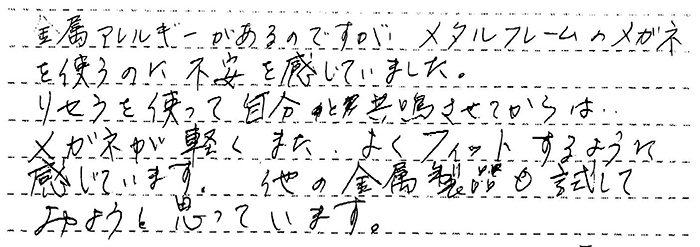 金属アレルギーがあるのですが、メタルフレームのメガネ
を使うのに不安を感じていました。
リセラを使って自分と共鳴させてからは、
メガネが軽くまた、よくフィットするように
感じています。他の金属製品も試して
みようと思っています。